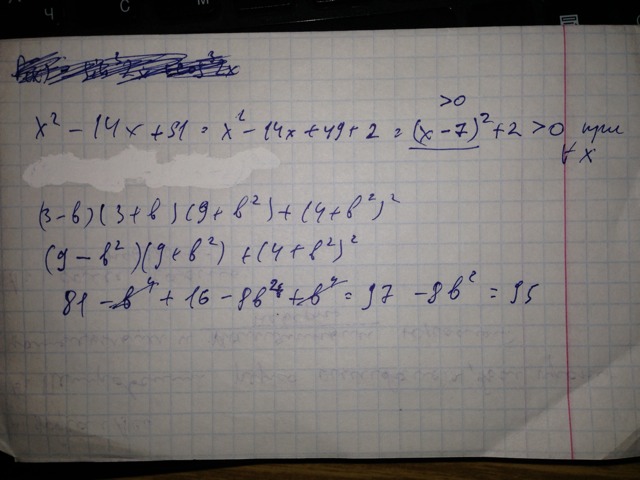 >0
x² - 14x + 51 = x² - 14x + 49 + 2 = (x - 7)² + 2 > 0 при
∀ x
(3 - b)(3 + b)(9 + b²) + (4 + b²)²
(9 - b²)(9 + b²) + (4 + b²)²
81 - b⁴ + 16 - 8b² + b⁴ = 97 - 8b² = 95